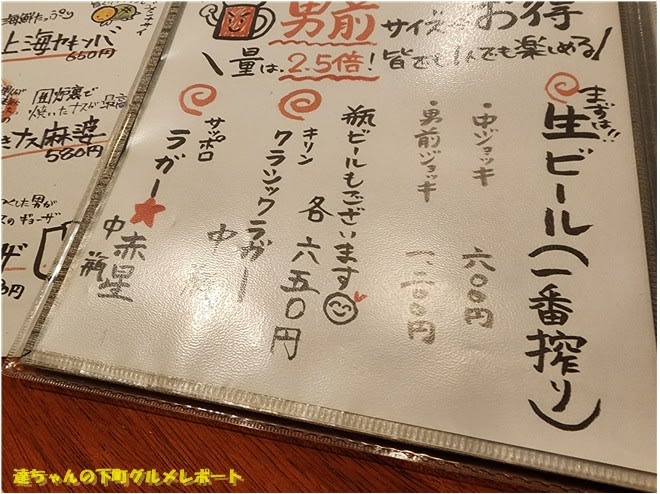 男前サイズ お得
量は、2.5倍!皆でも1人でも楽しめる
まずは!!
生ビール(一番搾り)
・中ジョッキ 六〇〇円
・男前ジョッキ 一、二〇〇円
瓶ビールもございます
各 六五〇円
キリン
クラシックラガー
中瓶
サッポロ
ラガー★赤星
中瓶
海鮮たっぷり
上海ヤキソバ
650円
焼いたナスが最高
ナス麻婆
580円
達ちゃんの下町グルメレポート